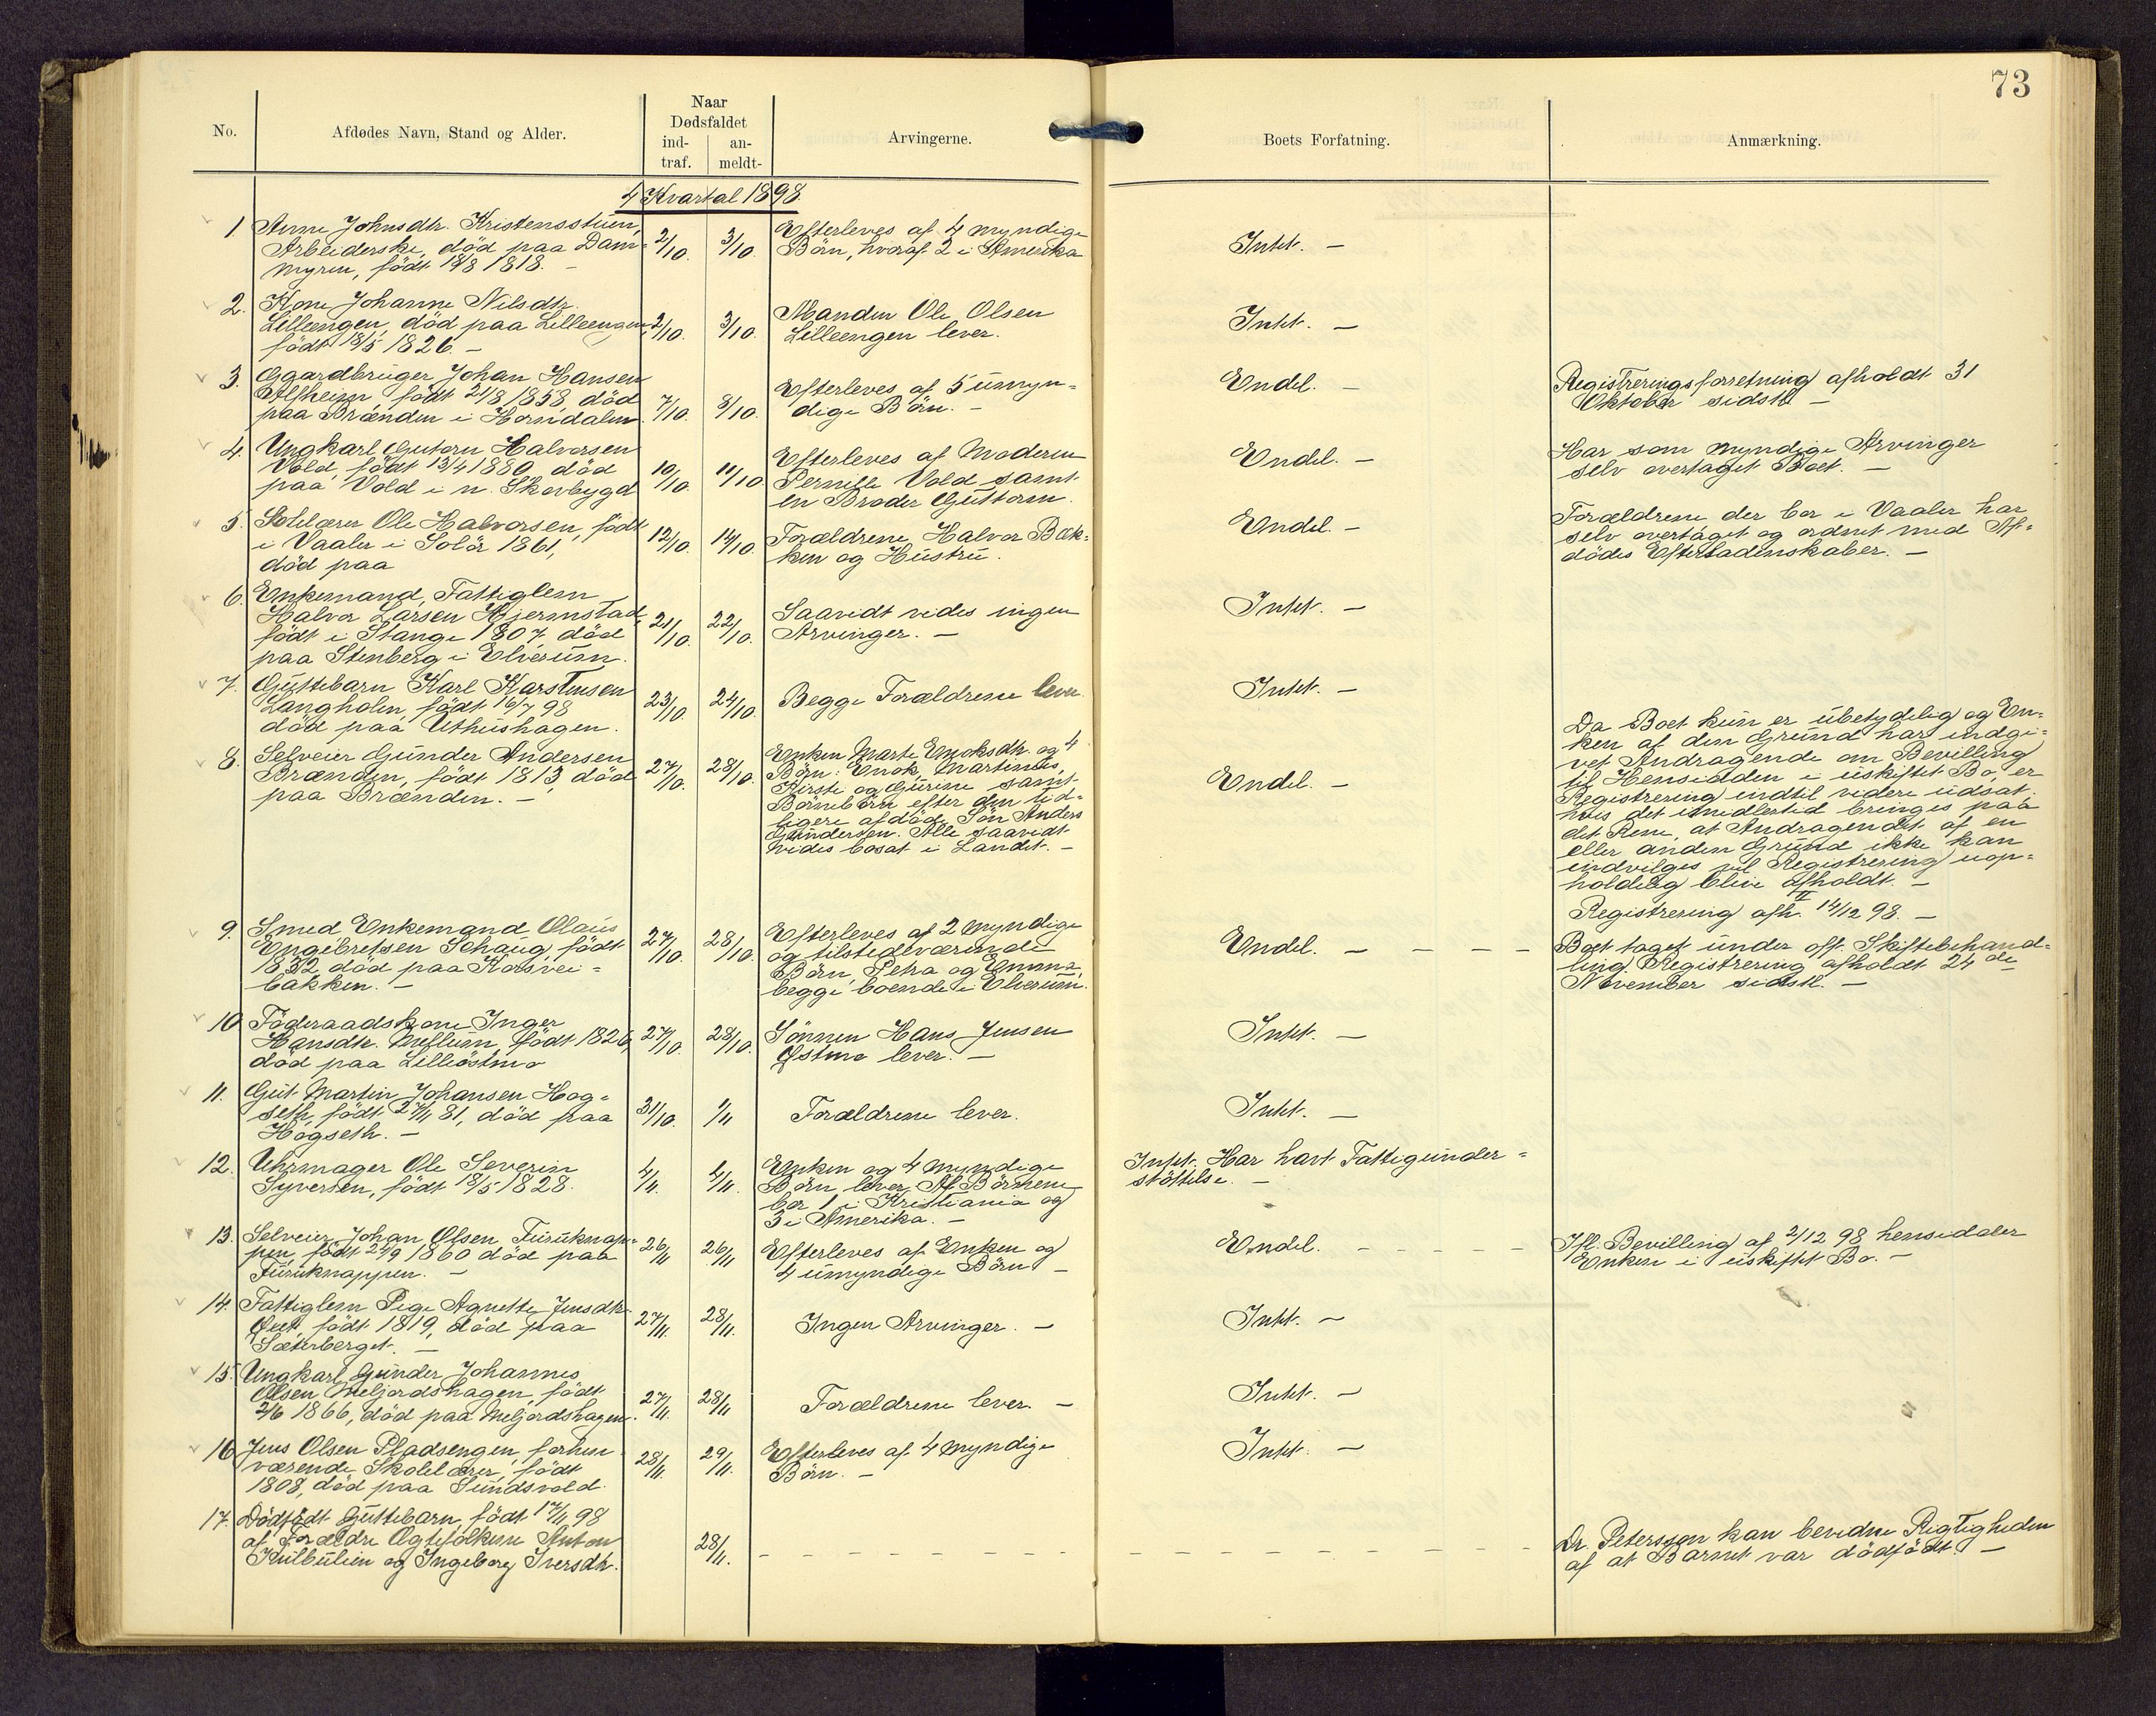 73
No.
Afdødes Navn, Stand og Alder.
Naar
Dødsfaldet
ind-
traf.
an-
meldt-
Arvingerne.
Boets Forfatning.
Anmærkning.
4 Kvartal 1898.
1 Anne Johnsdtr. Kristensstuen,
Arbeiderske, död paa Dam=
myren, födt 18/8 1818. —
2/10. 3/10.
Efterleves af 4 myndige
Börn, hvoraf 2 i Amerika
Intet. —
2. Kone Johanne Nilsdtr.
Lilleengen, död paa Lilleengen,
födt 18/5 1826. —
2/10. 3/10.
Manden Ole Olsen
Lilleengen lever.
Intet. —
3. Gaardbruger Johan Hansen
Alfheim födt 21/8 1858 död
paa Brænden i Horndalen.
7/10. 8/10.
Efterleves af 5 umyn=
dige Börn. —
Endel. —
Registreringsforretning afholdt 31
Oktober sidstl. —
4. Ungkarl Gutorm Halvorsen
Vold, födt 13/4 1880, död
paa Vold i n. Skovbygd
10/10. 11/10
Efterleves af Moderen
Pernille Vold samt
en Broder Guttorm.
Endel. —
Har som myndige Arvinger
selv overtaget Boet. —
5. Skolelærer Ole Halvorsen, födt
i Vaaler i Solör 1861,
död paa
12/10. 14/10.
Forældrene Halvor Bæk=
ken og Hustru.
Endel. —
Forældrene der bor i Vaaler har
selv overtaget og ordnet med Af=
dödes Efterladenskaber. —
6. Enkemand, Fattiglem
Halvor Larsen Hjermstad,
födt i Stange 1807, död
paa Stenberg i Elverum.
21/10. 22/10.
Saavidt vides ingen
Arvinger. —
Intet. —
7. Guttebarn Karl Karstensen
Langholen, födt 16/7 98
död paa Uthushagen.
23/10. 24/10.
Begge Forældrene lever.
Intet. —
8. Selveier Gunder Andersen
Brænden, födt 1813, död
paa Brænden. —
27/10. 28/10.
Enken Marte Enoksdtr. og 4
Börn: Enok, Martinus,
Kirsti og Gurine samt
Börnebörn efter den tid=
ligere afdöde Sön Anders
Gundersen. Alle saavidt
vides bosat i Landet. —
Endel. —
Da Boet kun er ubetydelig og En=
ken af den Grund har indgi=
vet Andragende om Bevilling
til Hensidden i uskiftet Bo, er
Registrering indtil videre udsat.
hvis det imidlertid bringes paa
det Rene, at Andragendet af en
eller anden Grund ikke kan
indvilges vil Registrering uop=
holdelig blive afholdt. —
Registrering afh. 14/12 98. —
9. Smed Enkemand Olaus
Engebretsen Schaug, födt
1832, död paa Korsvei=
bakken. —
27/10. 28/10.
Efterleves af 2 myndige
og tilstedeværende
Börn Petra og Emma,
begge boende i Elverum.
Endel. — — — —
Boet taget under off. Skiftebehand=
ling. Registrering afholdt 24de
November sidstl. —
10. Föderaadskone Inger
Hansdtr. Mellum, födt 1826,
död paa Lilleöstmo
27/10. 28/10.
Sönnen Hans Jensen
Østmo lever. —
Intet. —
11. Gut Martin Johansen Hog=
seth, födt 27/11 81, död paa
Hogseth. —
31/10. 1/11
Forældrene lever.
Intet. —
12. Uhrmager Ole Severin
Syversen, födt 18/5 1828.
4/11. 4/11.
Enken og 4 myndige
Börn lever, Af Börnene
bor 1 i Kristiania og
3 i Amerika. —
Intet. Har havt Fattigunder=
stöttelse. —
13. Selveier Johan Olsen Furuknap=
pen, födt 29/9 1860 död paa
Furuknappen. —
26/11 26/11
Efterleves af Enken og
4 umyndige Börn —
Endel. — — — — —
Ifl. Bevilling af 2/12 98 hensidder
Enken i uskiftet Bo. —
14. Fattiglem Pige Agnette Jensdtr.
födt 1819, död paa
Sæterberget. —
27/11. 28/11.
Ingen Arvinger. —
Intet. —
15. Ungkarl Gunder Johannes
Olsen Meljordshagen, födt
2/6 1866, död paa Meljordshagen.
27/11. 28/11
Forældrene lever. —
Intet. —
16. Jens Olsen Pladsengen, forhen
værende Skolelærer, födt
1808, död paa Sundsvold.
28/11. 29/11.
Efterleves af 4 myndige
Börn. —
Intet. —
17. Dödfödt Guttebarn, födt 17/11 98
af Forældre Ægtefolkene Anton
Kulbulien og Ingeborg Iversdtr.
28/11.
Dr. Petersson kan bevidne Rigtigheden
af at Barnet var dödfödt. —